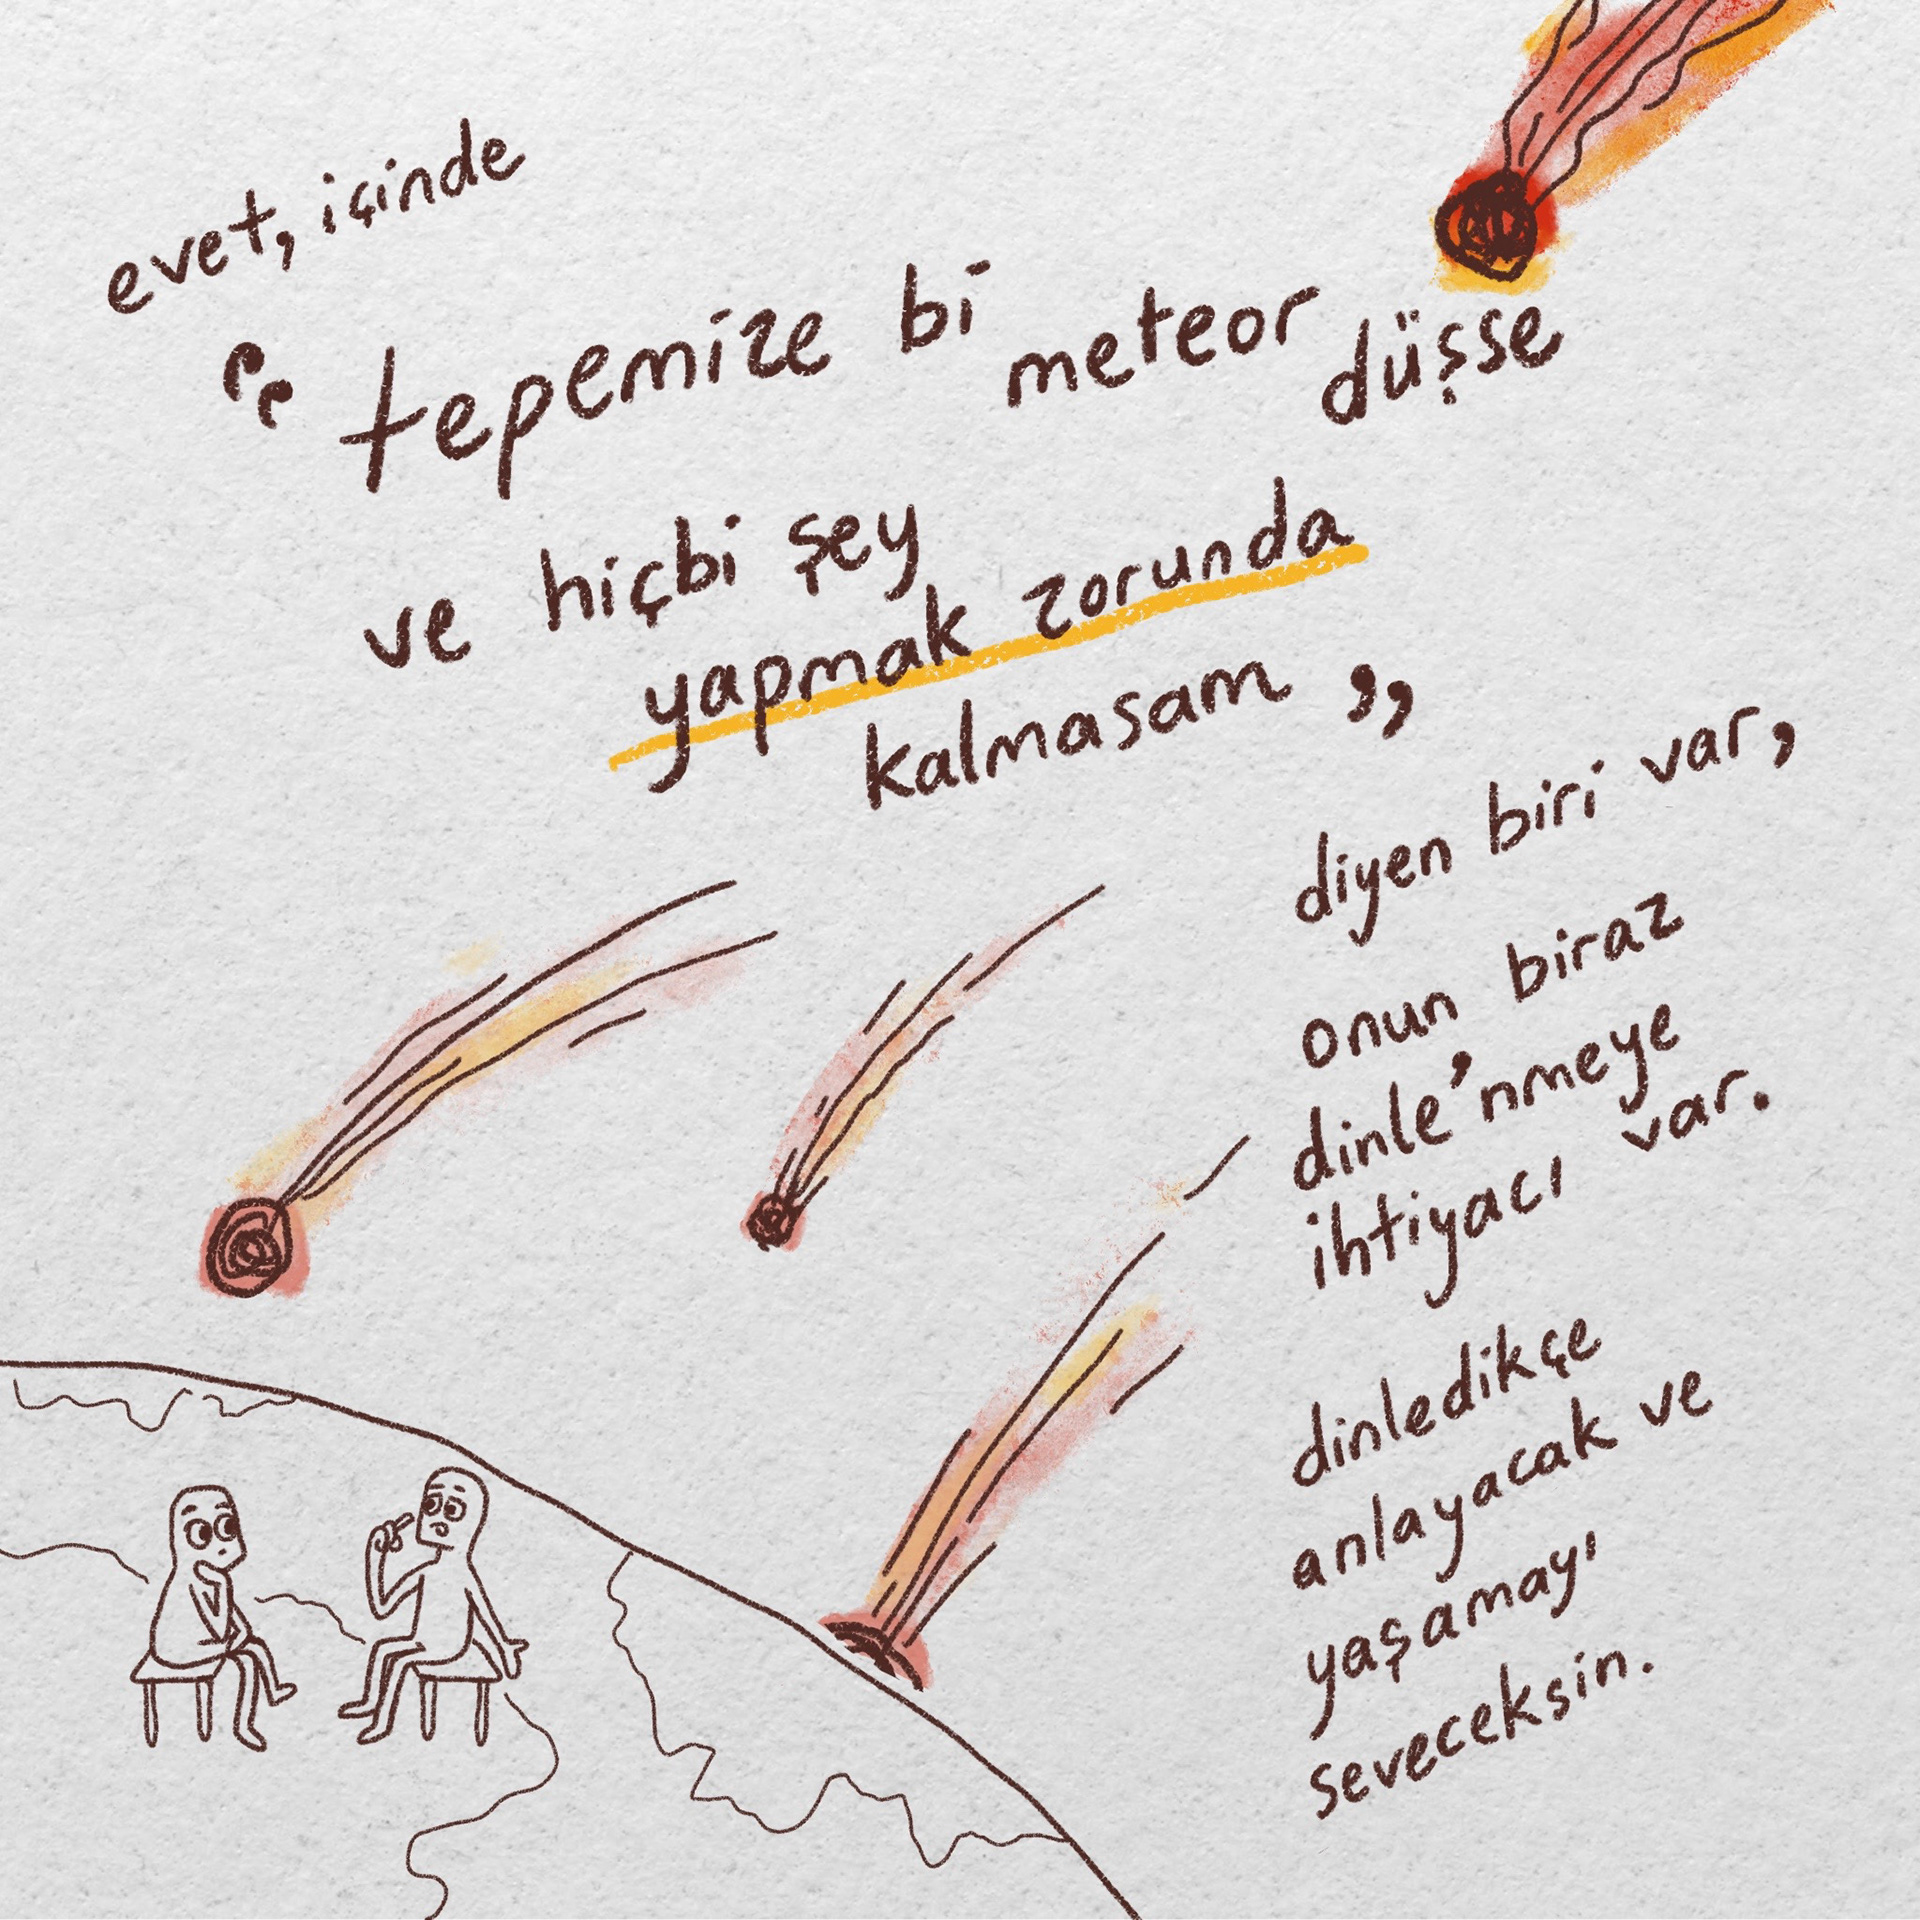 evet, içinde
“ tepemize bi meteor düşse
ve hiçbi şey
yapmak zorunda
kalmasam ”
diyen biri var,
onun biraz
dinle'nmeye
ihtiyacı var.
dinledikçe
anlayacak ve
yaşamayı
seveceksin.